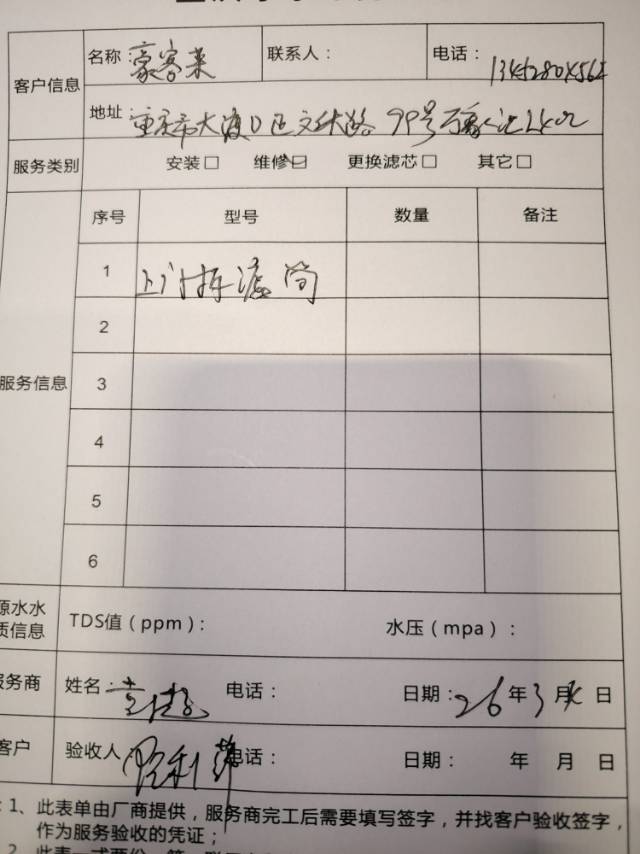 客户信息 名称：豪客来 联系人： 电话：
地址：重庆市大渡口区文体路99号万
服务类别 安装□ 维修☑ 更换滤芯□ 其它□
序号 型号 数量 备注
服务信息
1 上门拆滤筒
2
3
4
5
6
源水水质信息 TDS值（ppm）： 水压（mpa）：
服务商 姓名： 电话： 日期：26年3月 日
客户 验收人 利萍 电话： 日期： 年 月 日
1、此表单由厂商提供，服务商完工后需要填写签字，并找客户验收签字，
作为服务验收的凭证；